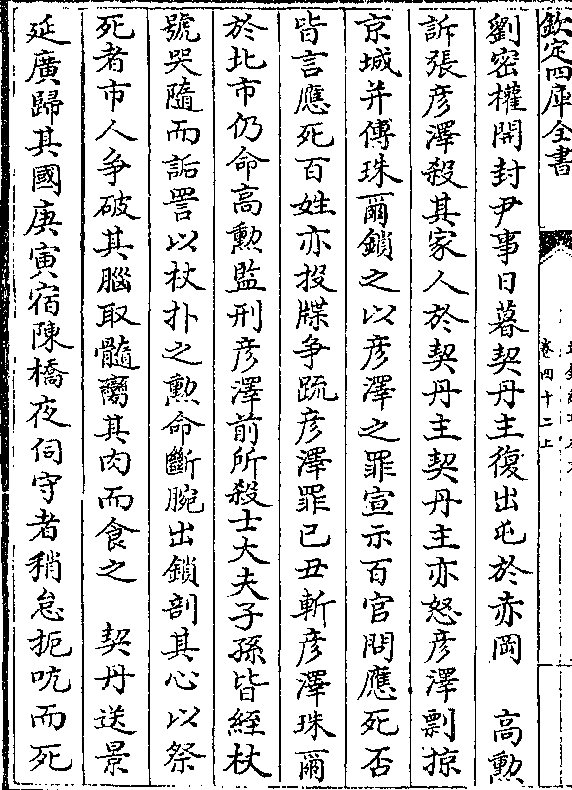 欽定四庫全書
卷四十二上
劉密權開封尹事日暮契丹主復出屯於赤岡　高勲
訴張彦澤殺其家人於契丹主契丹主亦怒彦澤剽掠
京城并傅珠爾鎖之以彦澤之罪宣示百官問應死否
皆言應死百姓亦投牒爭疏彦澤罪己丑斬彦澤珠爾
於北市仍命高勲監刑彦澤前所殺士大夫子孫皆絰杖
號哭隨而詬詈以杖扑之勲命斷腕出鎖剖其心以祭
死者市人爭破其腦取髓臠其肉而食之　契丹送景
延廣歸其國庚寅宿陳橋夜伺守者稍怠扼吭而死